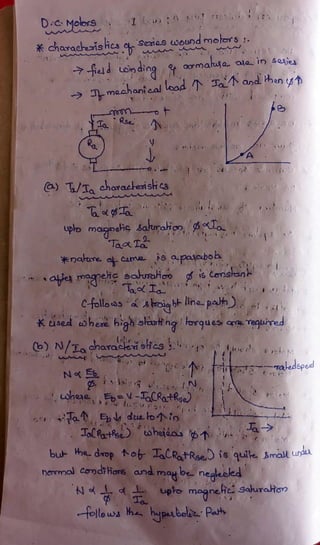 D.C. Motors
* characteristics of series wound motors :-
→ field winding & armature are in series
→ If mechanical load ↑ Ia ↑ and then φ↑
Rse
+
Ia
Ra
V
-
A
B
(a) Ta/Ia characteristics
Ta α φ Ia
upto magnetic saturation, φ α Ia
Ta α Ia²
* nature of curve is a parabola
after magnetic saturation φ is constant
Ta α Ia
(follows a straight line path)
* used where high starting torques are required
(b) N/Ia characteristics :-
N α Eb/φ
where, Eb = V - Ia(Ra+Rse)
Ia↑ Eb↓ due to ↑ in
Ia(Ra+Rse) whereas φ↑
N
rated speed
Ia →
but the drop ↑ of Ia(Ra+Rse) is quite small under
normal conditions and may be neglected
N α 1/φ α 1/Ia upto magnetic saturation
follows the hyperbolic Path